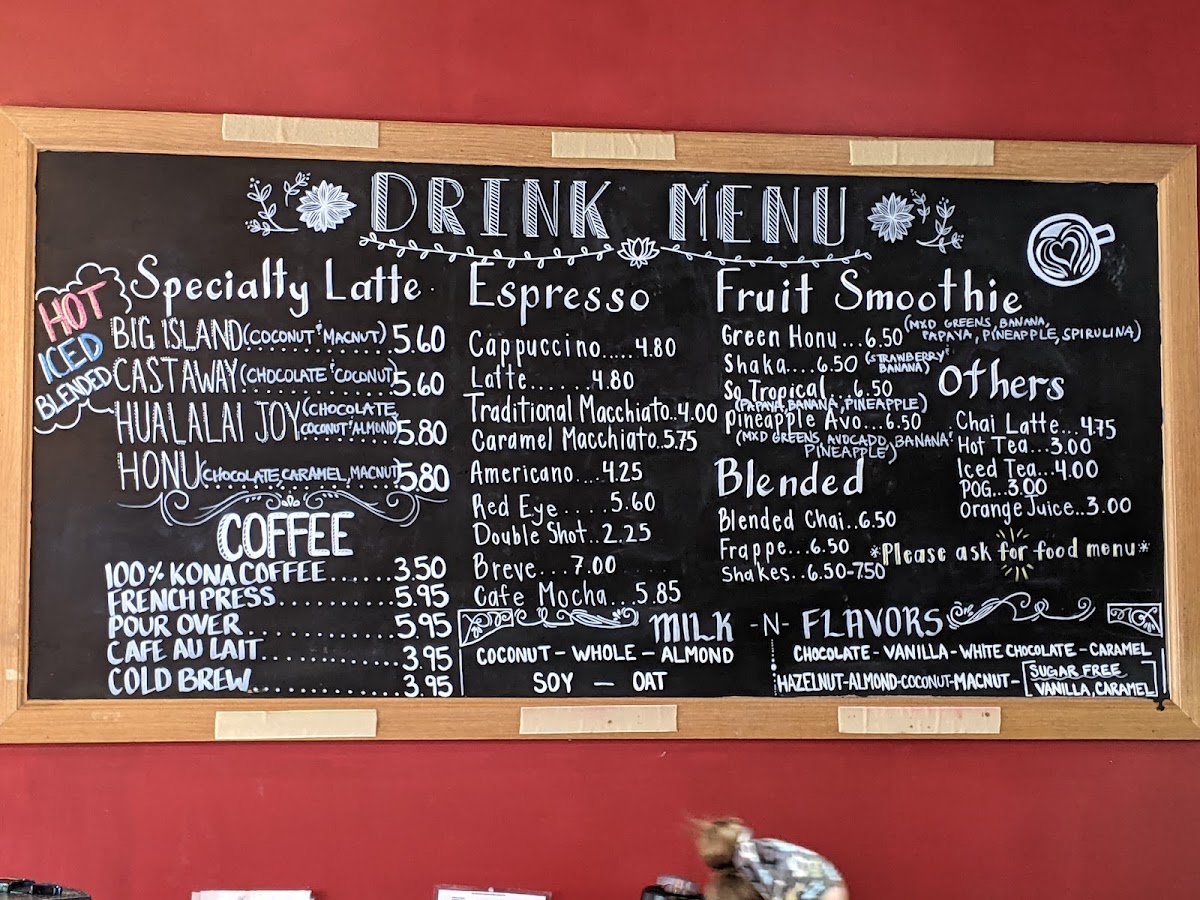 DRINK MENU
HOT
ICED
BLENDED
Specialty Latte
BIG ISLAND (COCONUT & MACNUT) 5.60
CASTAWAY (CHOCOLATE & COCONUT) 5.60
HUALALAI JOY (CHOCOLATE, COCONUT & ALMOND) 5.80
HONU (CHOCOLATE, CARAMEL, MACNUT) 5.80
COFFEE
100% KONA COFFEE......3.50
FRENCH PRESS..........5.95
POUR OVER.............5.95
CAFE AU LAIT..........3.95
COLD BREW.............3.95
Espresso
Cappuccino.....4.80
Latte.......4.80
Traditional Macchiato..4.00
Caramel Macchiato..5.75
Americano....4.25
Red Eye.....5.60
Double Shot..2.25
Breve...7.00
Cafe Mocha...5.85
Fruit Smoothie
Green Honu...6.50 (MXD GREENS, BANANA,
PAPAYA, PINEAPPLE, SPIRULINA)
Shaka....6.50 (STRAWBERRY &
BANANA)
So Tropical...6.50
(PAPAYA, BANANA, PINEAPPLE)
Pineapple Avo...6.50
(MXD GREENS, AVOCADO, BANANA &
PINEAPPLE)
Blended
Blended Chai..6.50
Frappe...6.50
Shakes..6.50-7.50
Others
Chai Latte...4.75
Hot Tea...3.00
Iced Tea...4.00
POG...3.00
Orange Juice..3.00
*Please ask for food menu*
MILK -N- FLAVORS
COCONUT - WHOLE - ALMOND
SOY - OAT
CHOCOLATE - VANILLA - WHITE CHOCOLATE - CARAMEL
HAZELNUT-ALMOND-COCONUT-MACNUT-
SUGAR FREE
VANILLA, CARAMEL